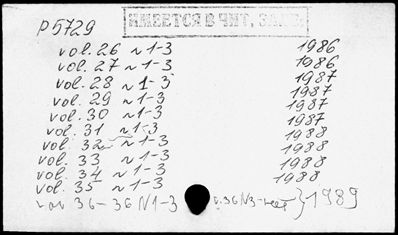 P5729
ИМЕЕТСЯ В ЧИТ. ЗАЛЕ
vol. 26 N 1-3 1986
vol. 27 N 1-3 1986
vol. 28 N 1-3 1987
vol. 29 N 1-3 1987
vol. 30 N 1-3 1987
vol. 31 N 1-3 1987
vol. 32 N 1-3 1988
vol. 33 N 1-3 1988
vol. 34 N 1-3 1988
vol. 35 N 1-3 1988
36-36 N1-3 v.36 N3-нет } 1989